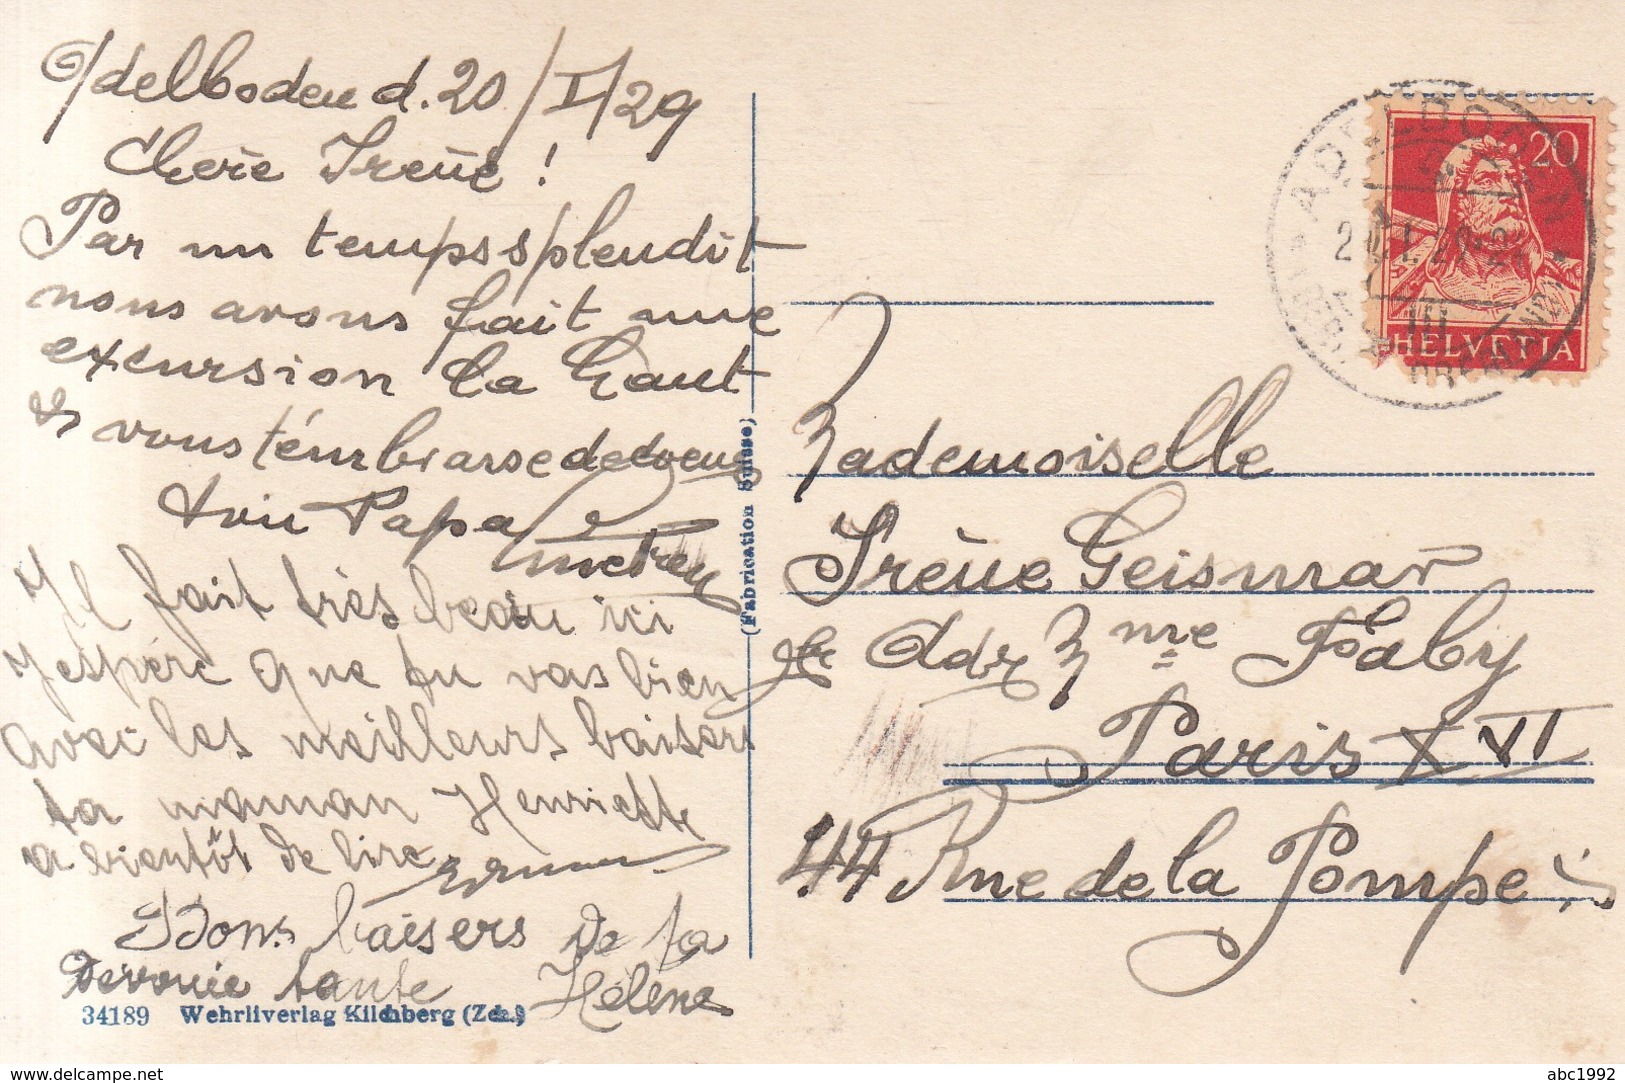 Adelboden d. 20/I/29
Chere Irène !
Par un temps splendit
nous avons fait une
excursion la haut
& vous t'émbrasse de coeur
ton Papa
Il fait très beau ici
j'espère que tu vas bien
avec les meilleurs baisers
ta maman Henriette
a bientôt de lire
Bons baisers de ta
Devouie tante Hélène
34189 Wehrliverlag Kilchberg (Zch.)
(Fabrication Suisse)
20
HELVETIA
ADELBODEN
Mademoiselle
Irène Geismar
Adr Mme Faby
Paris XVI
44 Rue de la Pompe
www.delcampe.net
abc1992